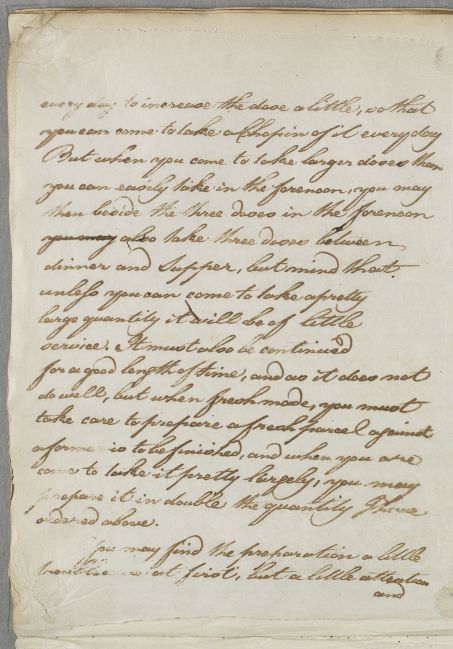 every day to increase the dose a little, so that
you can come to take a Chopin of it every day
But when you come to take larger doses than
you can easily take in the forenoon, you may
then beside the three doses in the forenoon
you may also take three doses between
dinner and Supper, but mind that
unless you can come to take a pretty
large quantity it will be of little
service. It must also be continued
for a good length of time, and as it does not
do well, but when fresh made, you must
take care to prepare a fresh parcel against
a former is to be finished, and when you are
come to take it pretty largely, you may
prepare it in double the quantity I have
ordered above.
You may find the preparation a little
troublesome at first, but a little attention
and